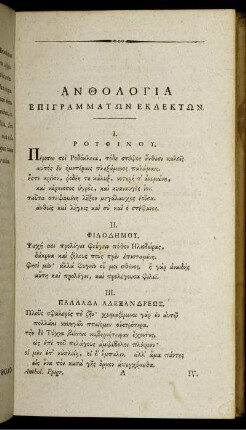 ΑΝΘΟΛΟΓΙΑ
ΕΠΙΓΡΑΜΜΑΤΩΝ ΕΚΛΕΚΤΩΝ.
I.
ΡΟΥΦΙΝΟΥ.
Πέμπω σοὶ Ῥοδόκλεια, τόδε στέφος ἄνθεσι καλοῖς
αὐτὸς ἐν ἡμετέραις πλεξάμενος παλάμαις.
ἔστι κρίνον, ῥοδέη τε κάλυξ, νοτερή τ' ἀνεμώνη,
καὶ νάρκισσος ὑγρὸς, καὶ κυαναυγὲς ἴον.
ταῦτα στεψαμένη λῆξον μεγάλαυχος ἐοῦσα.
ἀνθεῖς καὶ λήγεις καὶ σὺ καὶ ὁ στέφανος.
II.
ΦΙΛΟΔΗΜΟΥ.
Ψυχή μοι προλέγει φεύγειν πόθον Ἡλιοδώρας,
δάκρυα καὶ ζήλους τοὺς πρὶν ἐπισταμένη.
φησὶ μέν· ἀλλὰ φυγεῖν οὔ μοι σθένος. ἡ γὰρ ἀναιδὴς
αὐτὴ καὶ προλέγει, καὶ προλέγουσα φιλεῖ.
III.
ΠΑΛΛΑΔΑ ΑΛΕΞΑΝΔΡΕΩΣ.
Πλοῦς σφαλερὸς τὸ ζῆν· χειμαζόμενοι γὰρ ἐν αὐτῷ
πολλάκι ναυηγῶν πταίομεν οἰκτρότερα.
τὴν δὲ Τύχην βιότοιο κυβερνήτειραν ἔχοντες,
ὡς ἐπὶ τοῦ πελάγους ἀμφίβολοι πλέομεν·
οἱ μὲν ἐπ' εὐπλοΐην, οἱ δ' ἔμπαλιν. ἀλλ' ἅμα πάντες
εἰς ἕνα τὸν κατὰ γῆς ὅρμον ἀπερχόμεθα.
Anthol. Epigr. A IV.